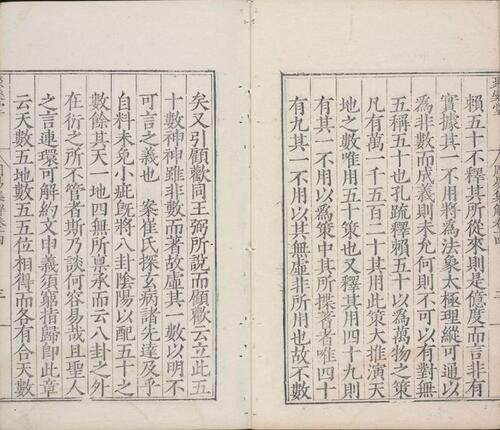 賴五十不釋其所從來則是億度而言非有
實據其一不用將為法象太極理縱可通以
為非數而成義則未允何則不可以有對無
五稱五十也孔疏釋賴五十以為萬物之策
凡有萬一千五百二十其用此策大推演天
地之數唯用五十策也又釋其用四十九則
有其一不用以為策中其所揲蓍者唯四十
有九其一不用以其無虛非所用也故不數
矣又引顧歡同王弼所說而顧歡云立此五
十數神神雖非數而著故虛其一數以明不
可言之義也 案崔氏探玄病諸先達及乎
自料未免小疵旣將八卦陰陽以配五十之
數餘其天一地四無所禀承而云八卦之外
在衍之所不管者斯乃談何容易哉且聖人
之言連環可解約文申義須窮指歸卽此章
云天數五地數五五位相得而各有合天數